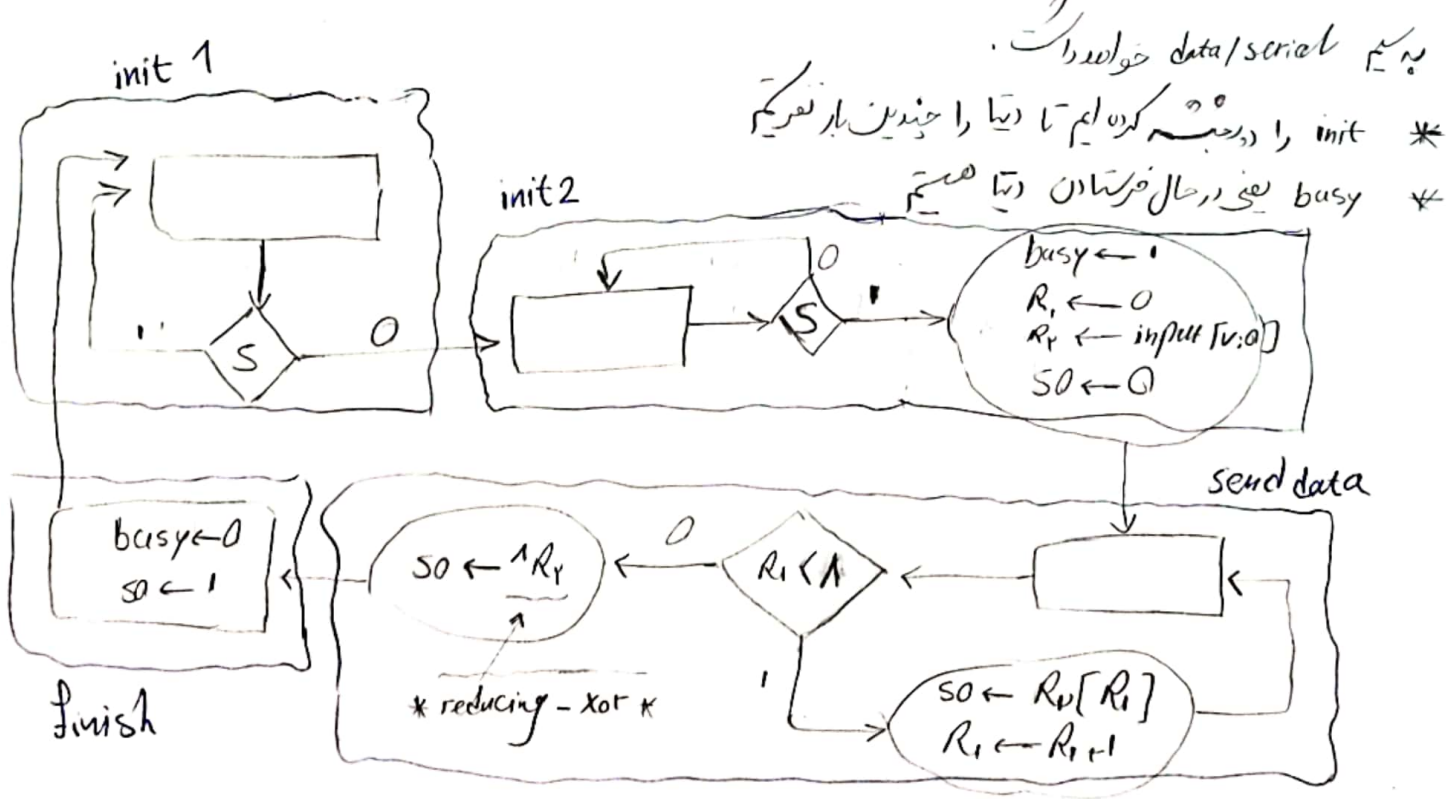 data/serial خواهد داشت .
* init را دو بخشه کرده ایم تا دیتا را چندین بار نفرستیم
* busy یعنی در حال فرستادن دیتا هستیم
init 1
S
۱
0
init 2
S
0
۱
busy ← ۱
R۱ ← 0
R۲ ← input [۷:0]
SO ← 0
send data
R۱ < ۸
0
۱
SO ← R۲[R۱]
R۱ ← R۱+۱
SO ← ^R۲
* reducing - xor *
busy ← 0
so ← ۱
finish